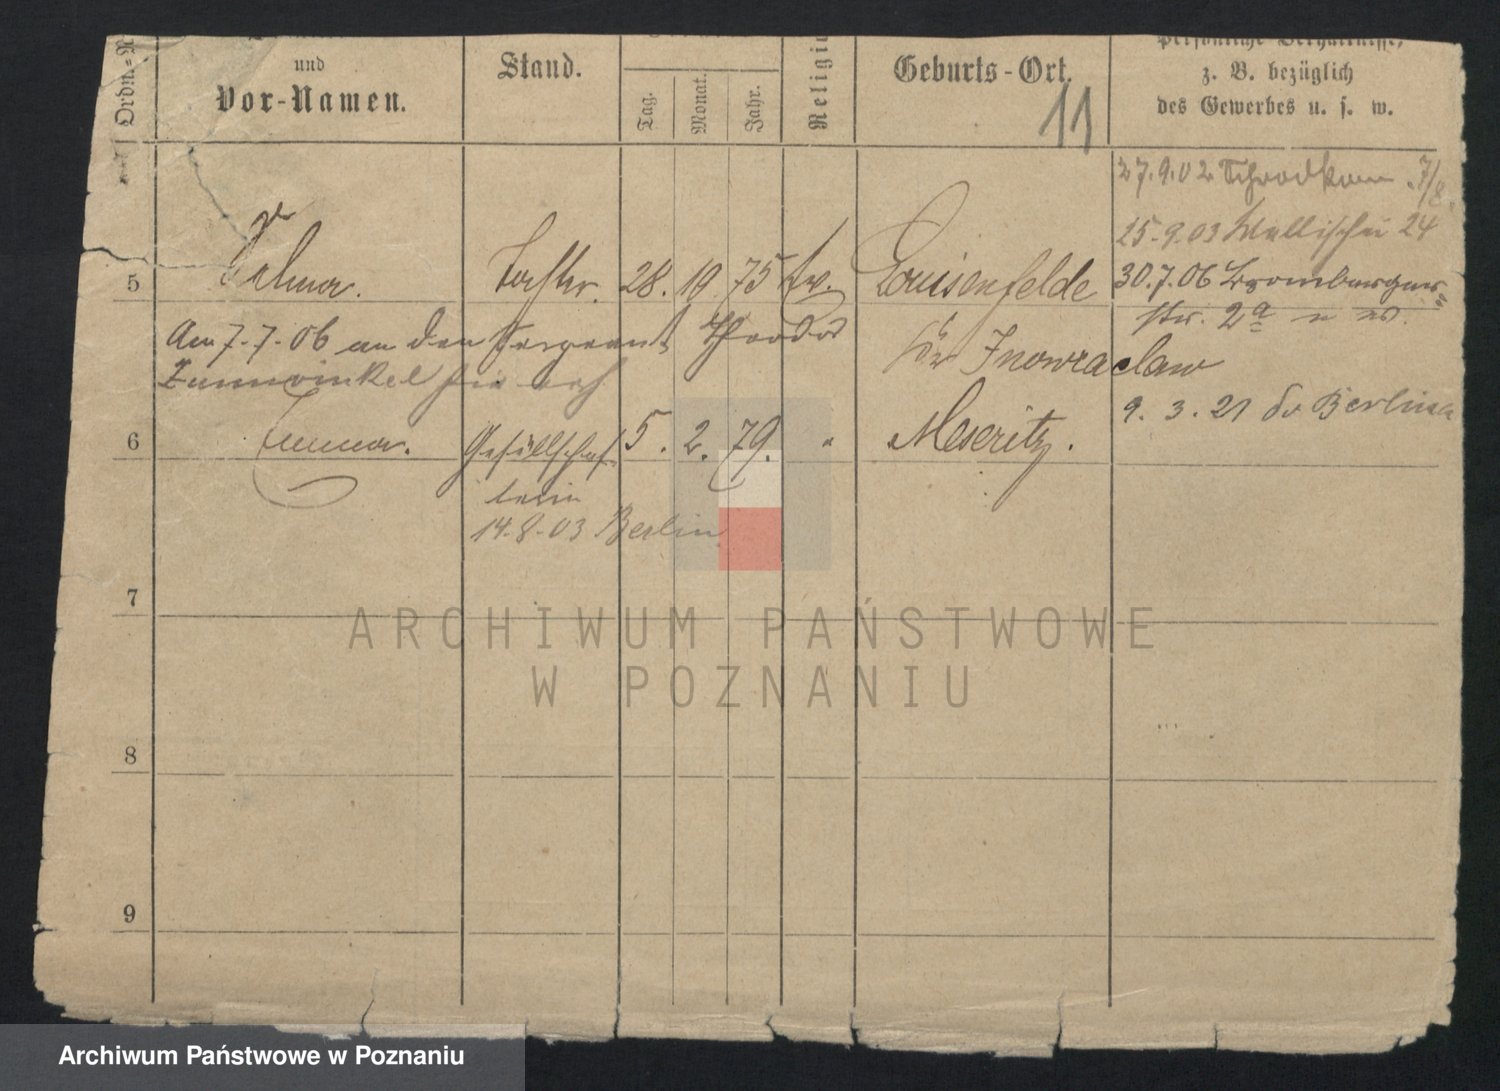 Ordn.=N
und
Vor-Namen.
Stand.
Tag.
Monat.
Jahr.
Religio
Geburts-Ort.
11
persönliche Verhältnisse,
z. B. bezüglich
des Gewerbes u. s. w.
27.9.02
25.9.03 Wallischei 24
5
Selma.
Tochter.
28. 10 75 Ev.
Louisenfelde
30.7.06 Bromberger
str. 2a
Am 7.7.06 an den Sergeant Theodor
Kr Inowraclaw
9. 3. 21 Berlin
6
Emma.
Gesellschaf
terin
5. 2. 79. "
Meseritz.
14.8.03 Berlin
7
ARCHIWUM PAŃSTWOWE
W POZNANIU
8
9
Archiwum Państwowe w Poznaniu